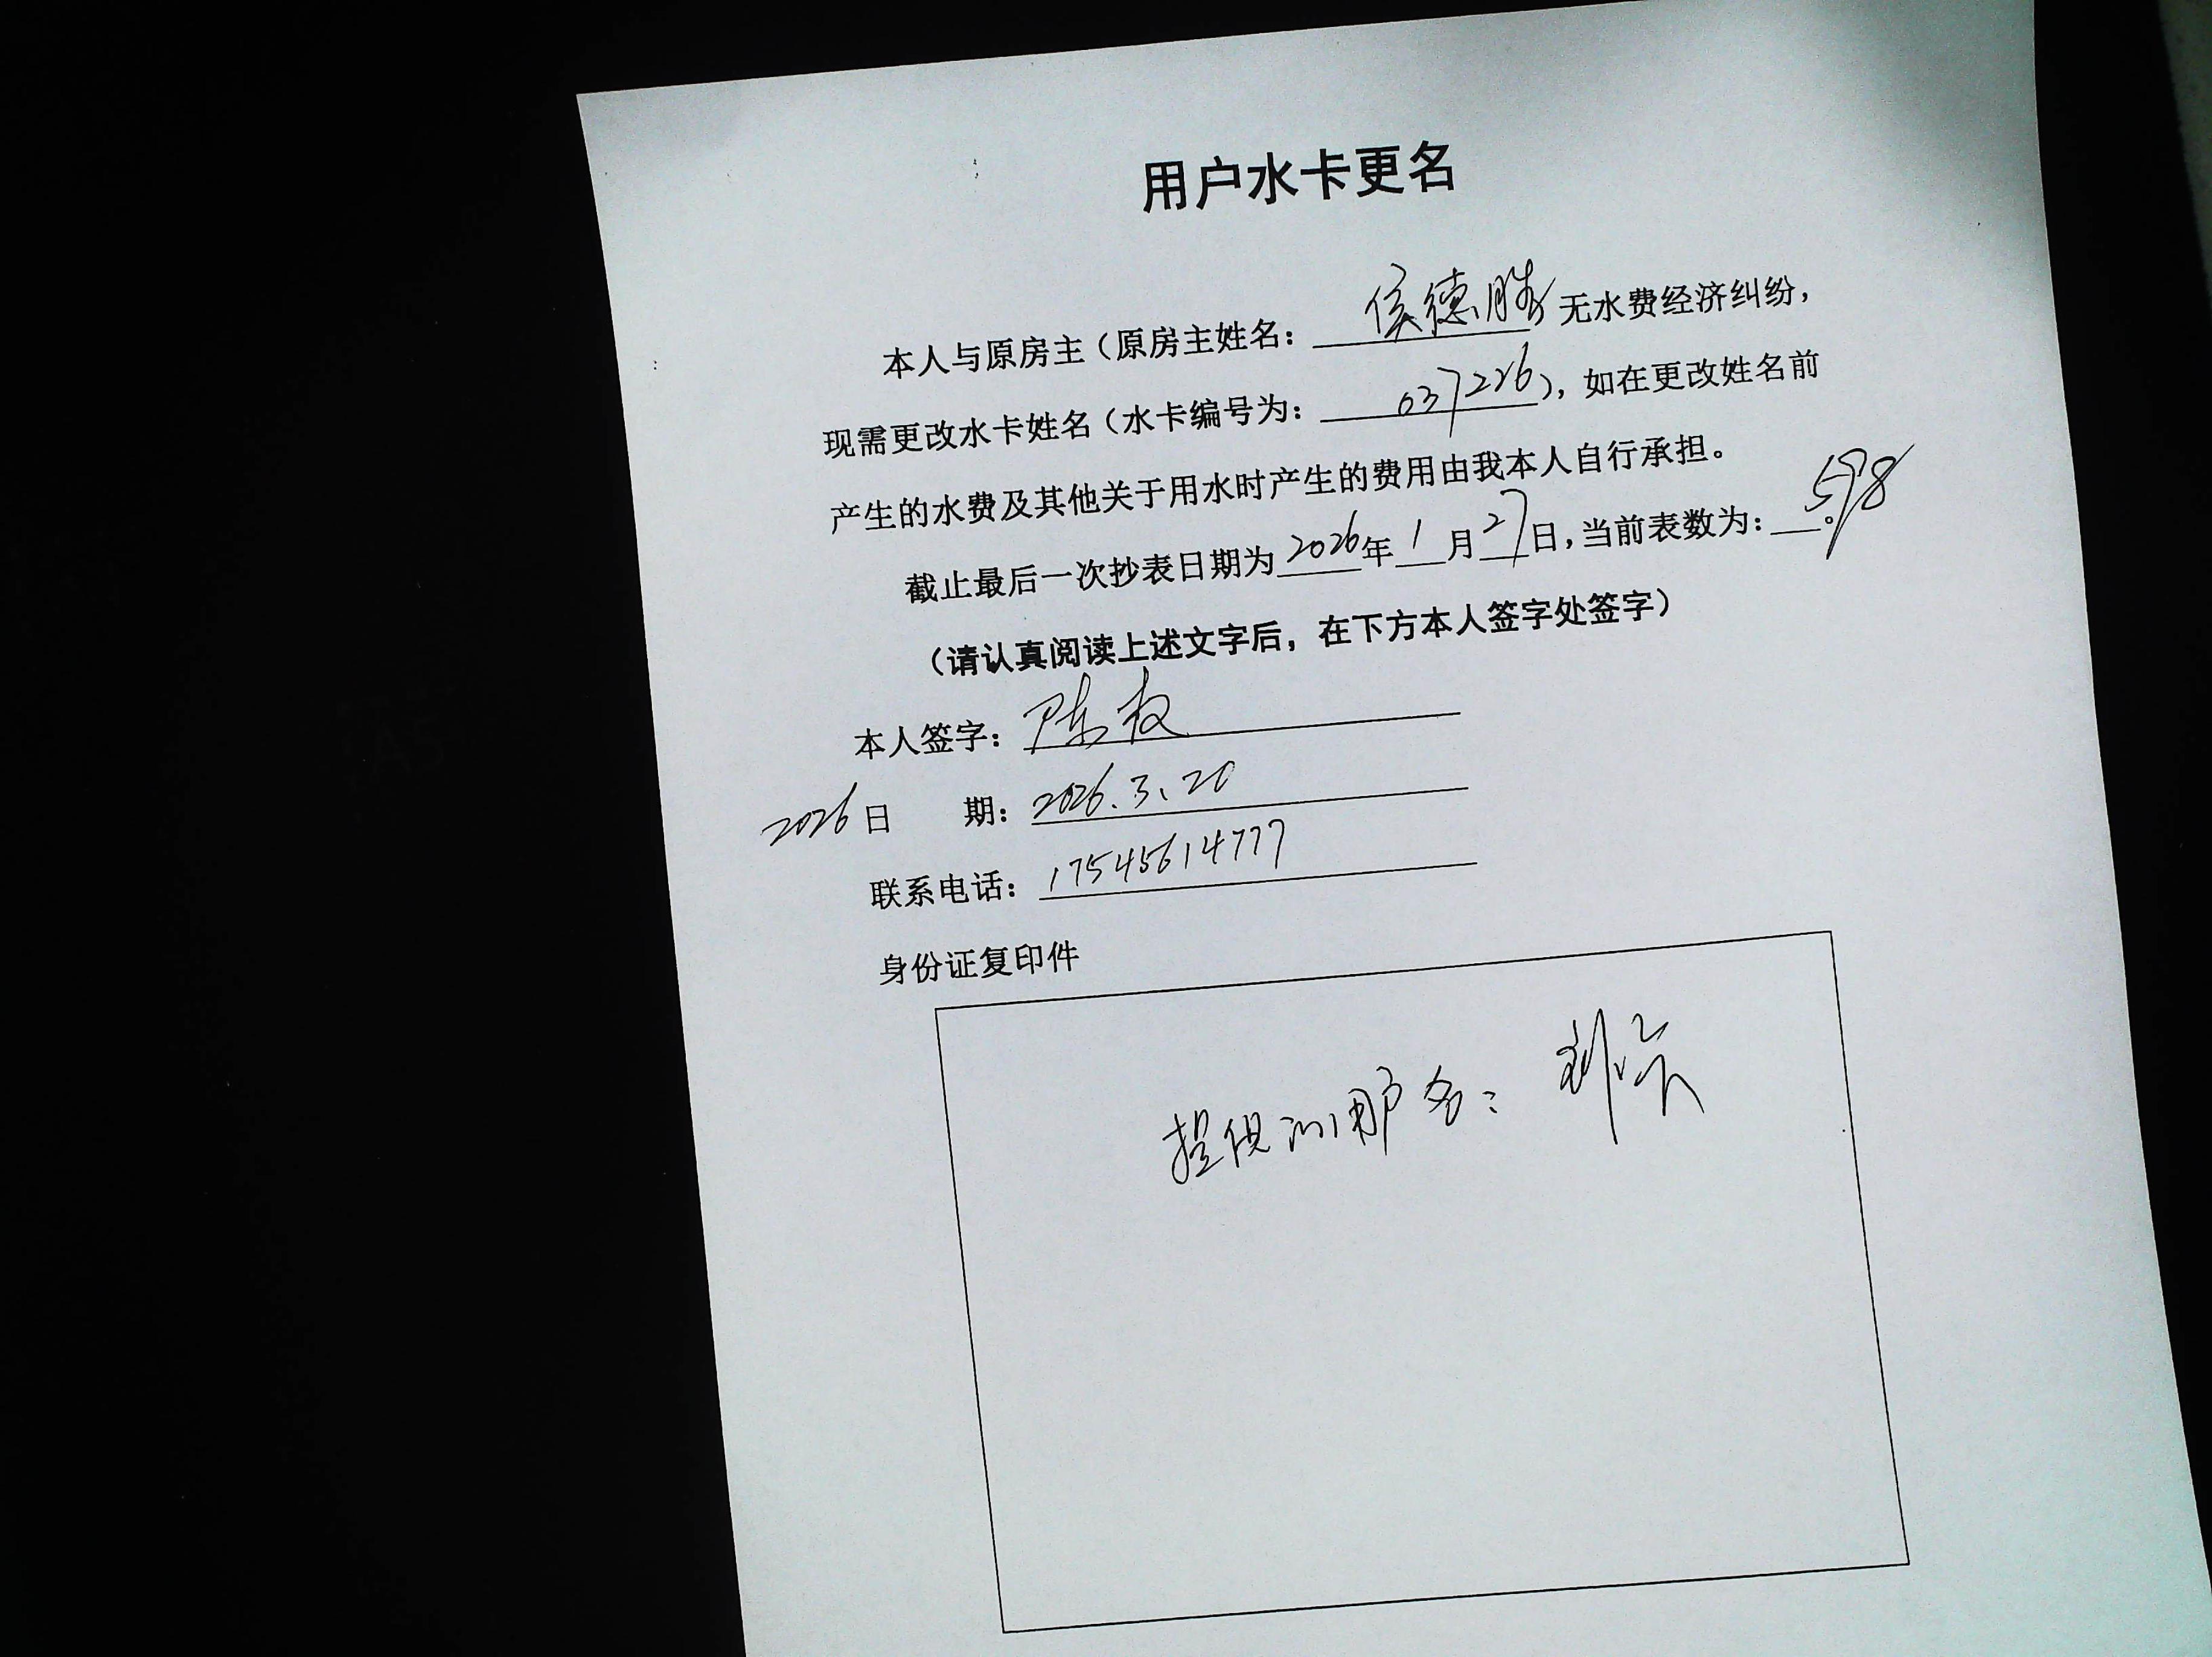 用户水卡更名
本人与原房主（原房主姓名：侯德胜 无水费经济纠纷，
现需更改水卡姓名（水卡编号为：037226），如在更改姓名前
产生的水费及其他关于用水时产生的费用由我本人自行承担。
截止最后一次抄表日期为2026年1月27日，当前表数为：598。
（请认真阅读上述文字后，在下方本人签字处签字）
本人签字：陈权
2026日 期：2026.3.20
联系电话：17545614777
身份证复印件
提供的用户名：